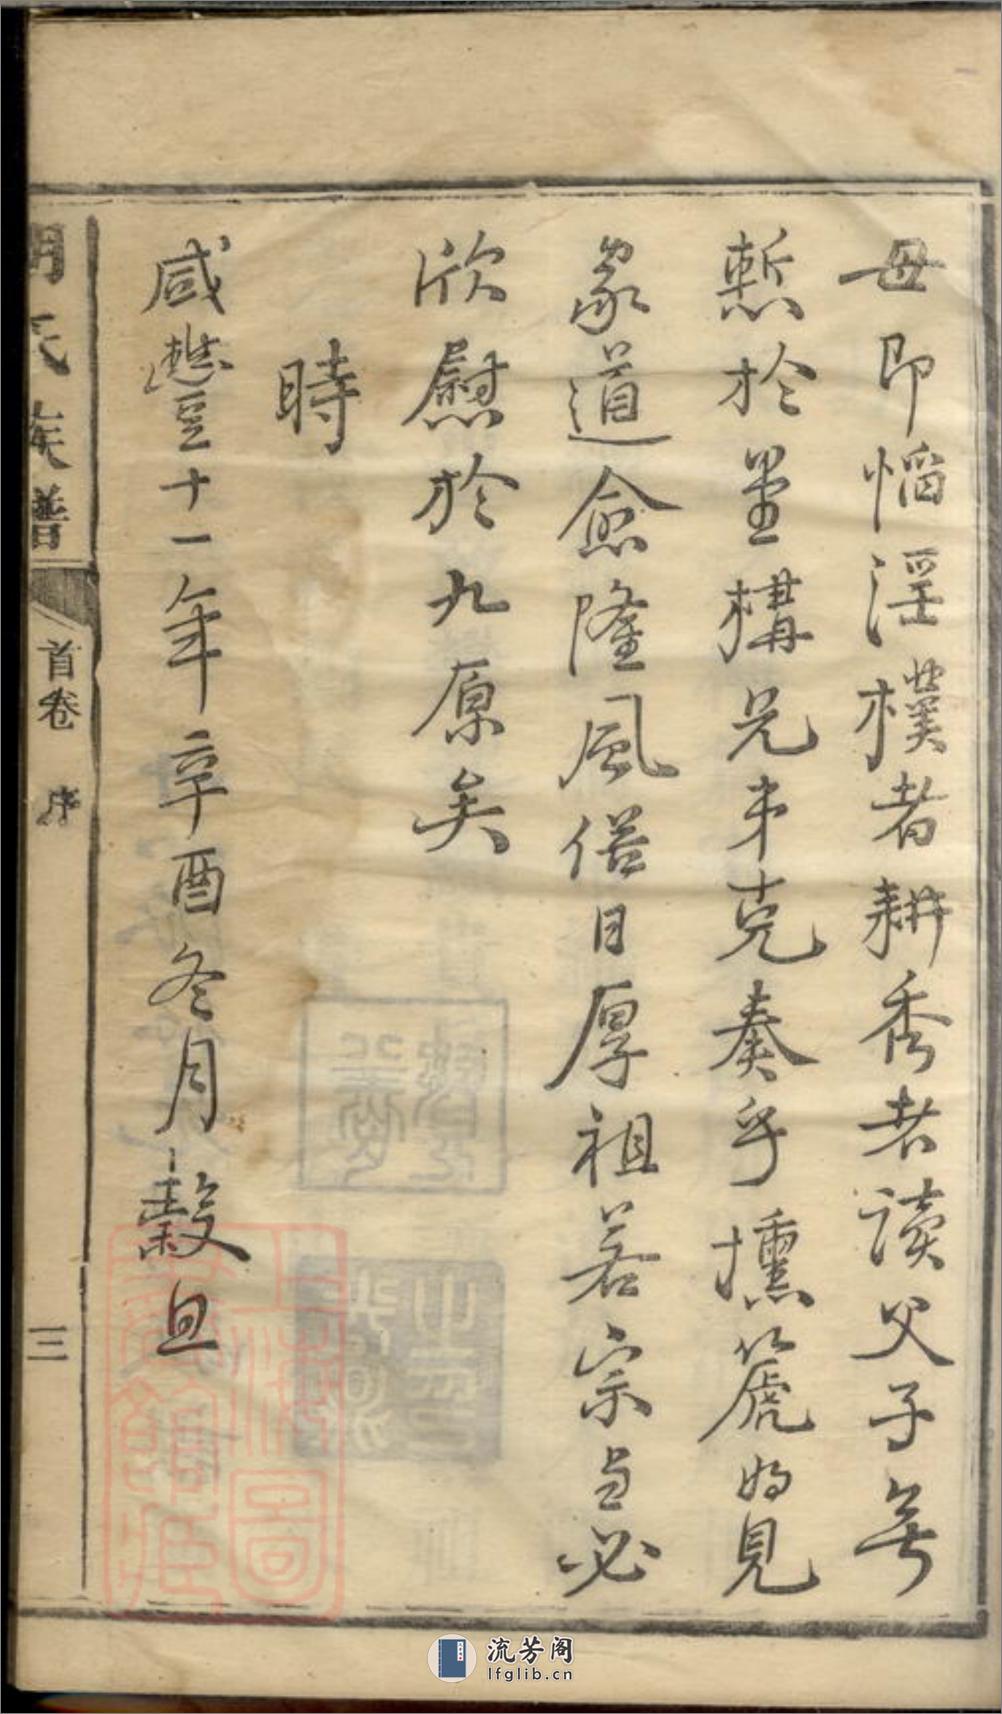 毋即慆淫樸者耕秀者读父子無
慙於堂構兄弟克奏乎壎篪將見
家道愈隆風俗日厚祖若宗當必
欣慰於九原矣
時
咸豐十一年辛酉冬月穀旦
胡氏族譜
首卷 序
三
上海圖書館藏
流芳阁
lfglib.cn